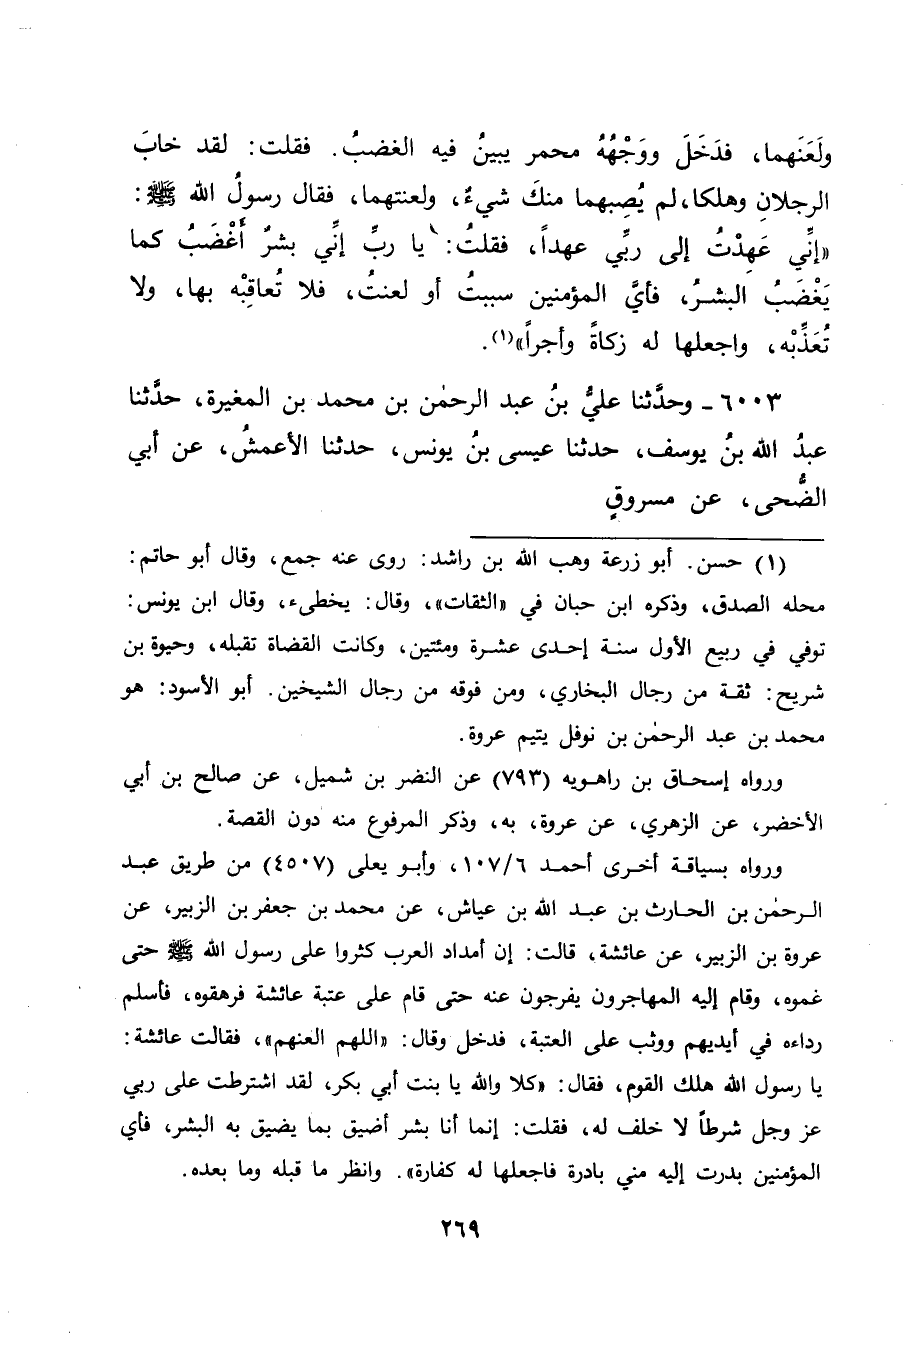 ولَعَنَهما، فدَخَلَ ووَجْهُهُ محمر يبينُ فيه الغضبُ. فقلت: لقد خابَ
الرجلانِ وهلكا، لم يُصِبهما منكَ شيءٌ، ولعنتهما، فقال رسولُ الله ﷺ:
«إنِّي عَهِدْتُ إلى ربِّي عهداً، فقلتُ: يا ربِّ إنِّي بشرٌ أَغْضَبُ كما
يَغْضَبُ البشرُ، فأيَّ المؤمنين سببتُ أو لعنتُ، فلا تُعاقِبْه بها، ولا
تُعَذِّبْه، واجعلها له زكاةً وأجراً»(١).
٦٠٠٣ ـ وحدَّثنا عليُّ بنُ عبد الرحمٰن بن محمد بن المغيرة، حدَّثنا
عبدُ الله بنُ يوسف، حدثنا عيسى بنُ يونس، حدثنا الأعمشُ، عن أبي
الضُّحى، عن مسروقٍ
(١) حسن. أبو زرعة وهب الله بن راشد: روى عنه جمع، وقال أبو حاتم:
محله الصدق، وذكره ابن حبان في «الثقات»، وقال: يخطىء، وقال ابن يونس:
توفي في ربيع الأول سنة إحدى عشرة ومئتين، وكانت القضاة تقبله، وحيوة بن
شريح: ثقة من رجال البخاري، ومن فوقه من رجال الشيخين. أبو الأسود: هو
محمد بن عبد الرحمٰن بن نوفل يتيم عروة.
ورواه إسحاق بن راهويه (٧٩٣) عن النضر بن شميل، عن صالح بن أبي
الأخضر، عن الزهري، عن عروة، به، وذكر المرفوع منه دون القصة.
ورواه بسياقة أخرى أحمد ١٠٧/٦، وأبو يعلى (٤٥٠٧) من طريق عبد
الرحمٰن بن الحارث بن عبد الله بن عياش، عن محمد بن جعفر بن الزبير، عن
عروة بن الزبير، عن عائشة، قالت: إن أمداد العرب كثروا على رسول الله ﷺ حتى
غموه، وقام إليه المهاجرون يفرجون عنه حتى قام على عتبة عائشة فرهقوه، فأسلم
رداءه في أيديهم ووثب على العتبة، فدخل وقال: «اللهم العنهم»، فقالت عائشة:
يا رسول الله هلك القوم، فقال: «كلا والله يا بنت أبي بكر، لقد اشترطت على ربي
عز وجل شرطاً لا خلف له، فقلت: إنما أنا بشر أضيق بما يضيق به البشر، فأي
المؤمنين بدرت إليه مني بادرة فاجعلها له كفارة». وانظر ما قبله وما بعده.
٢٦٩